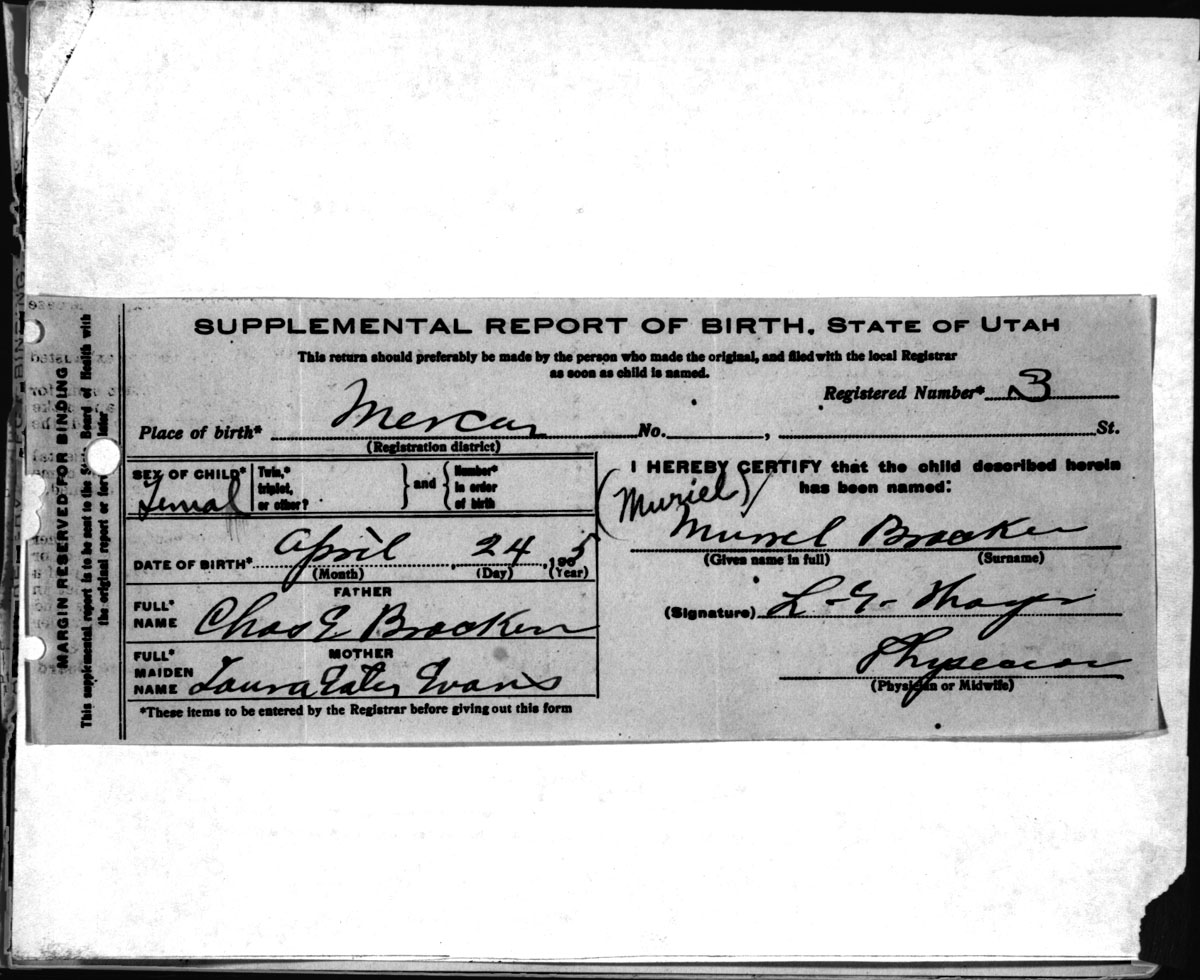 SUPPLEMENTAL REPORT OF BIRTH, STATE OF UTAH
This return should preferably be made by the person who made the original, and filed with the local Registrar
as soon as child is named.
Registered Number* 3
Place of birth* Mercur No. , St.
(Registration district)
SEX OF CHILD* Femal
Twin,* triplet, or other? } and { Number* in order of birth
DATE OF BIRTH* April 24, 1905
(Month) (Day) (Year)
FATHER
FULL* NAME Chas E Bracken
MOTHER
FULL* MAIDEN NAME Laura Evans
*These items to be entered by the Registrar before giving out this form
I HEREBY CERTIFY that the child described herein
has been named:
(Muriel)
Murrel Bracken
(Given name in full) (Surname)
(Signature) L. E. Thayer
Physecian
(Physician or Midwife)
MARGIN RESERVED FOR BINDING
This supplemental report is to be sent to the Board of Health with
the original report or